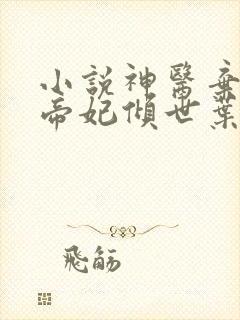 小說神醫棄
帝妃傾世葉
飛觴